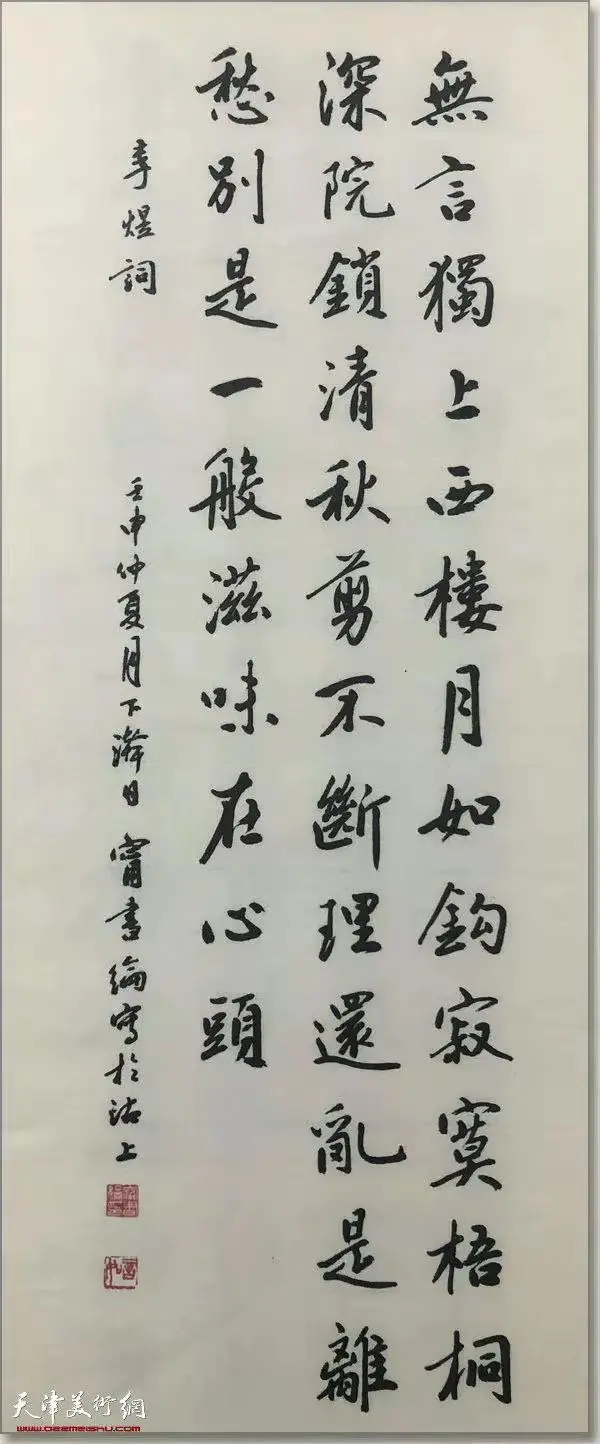 無言獨上西樓月如鈎寂寞梧桐
深院鎖清秋剪不斷理還亂是離
愁别是一般滋味在心頭
李煜詞
壬申仲夏月下澣日 甯書綸寫於沽上
天津美術網
www.022meishu.com